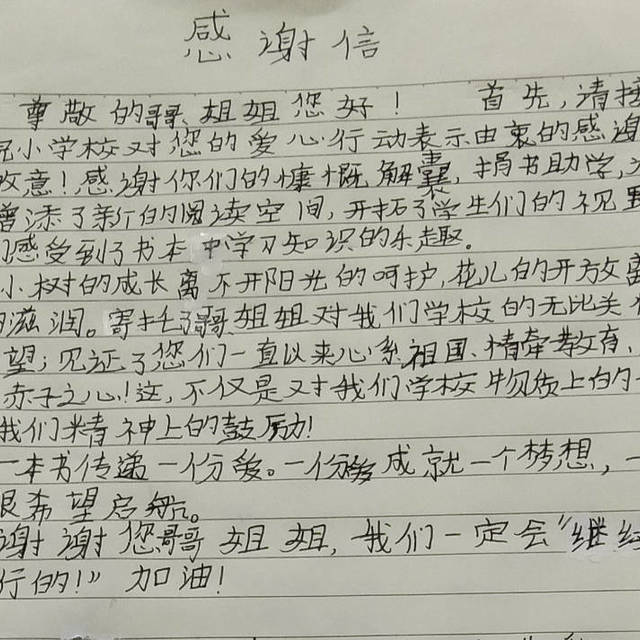 感谢信
尊敬的哥哥姐姐您好！ 首先,请接
小学校对您的爱心行动表示由衷的感谢
敬意！感谢你们的慷慨解囊,捐书助学,
增添了新的阅读空间,开拓了学生们的视野
们感受到了书本中学习知识的乐趣。
小树的成长离不开阳光的呵护,花儿的开放离
的滋润。寄托了哥哥姐姐对我们学校的无比关
望；见证了您们一直以来心系祖国、情牵教育、
赤子之心！这,不仅是对我们学校物质上的
我们精神上的鼓励！
一本书传递一份爱。一份爱成就一个梦想,一
艰希望启航。
谢谢您哥哥姐姐,我们一定会“继续
行的！”加油！